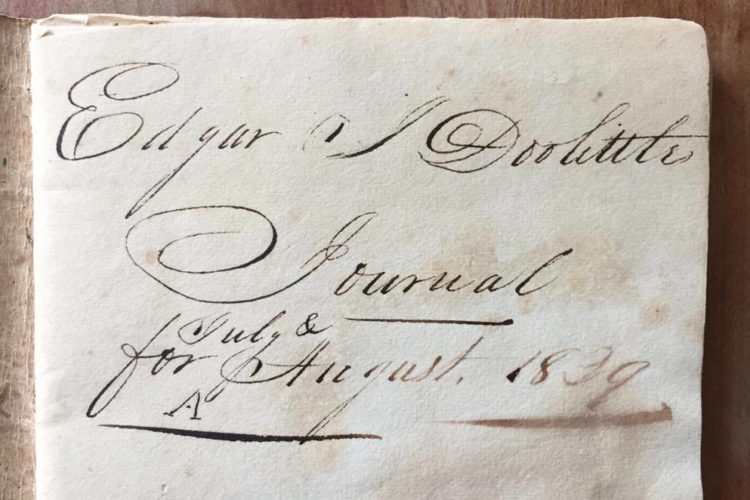 Edgar J Doolittle
Journal
July &
for August, 1839
A